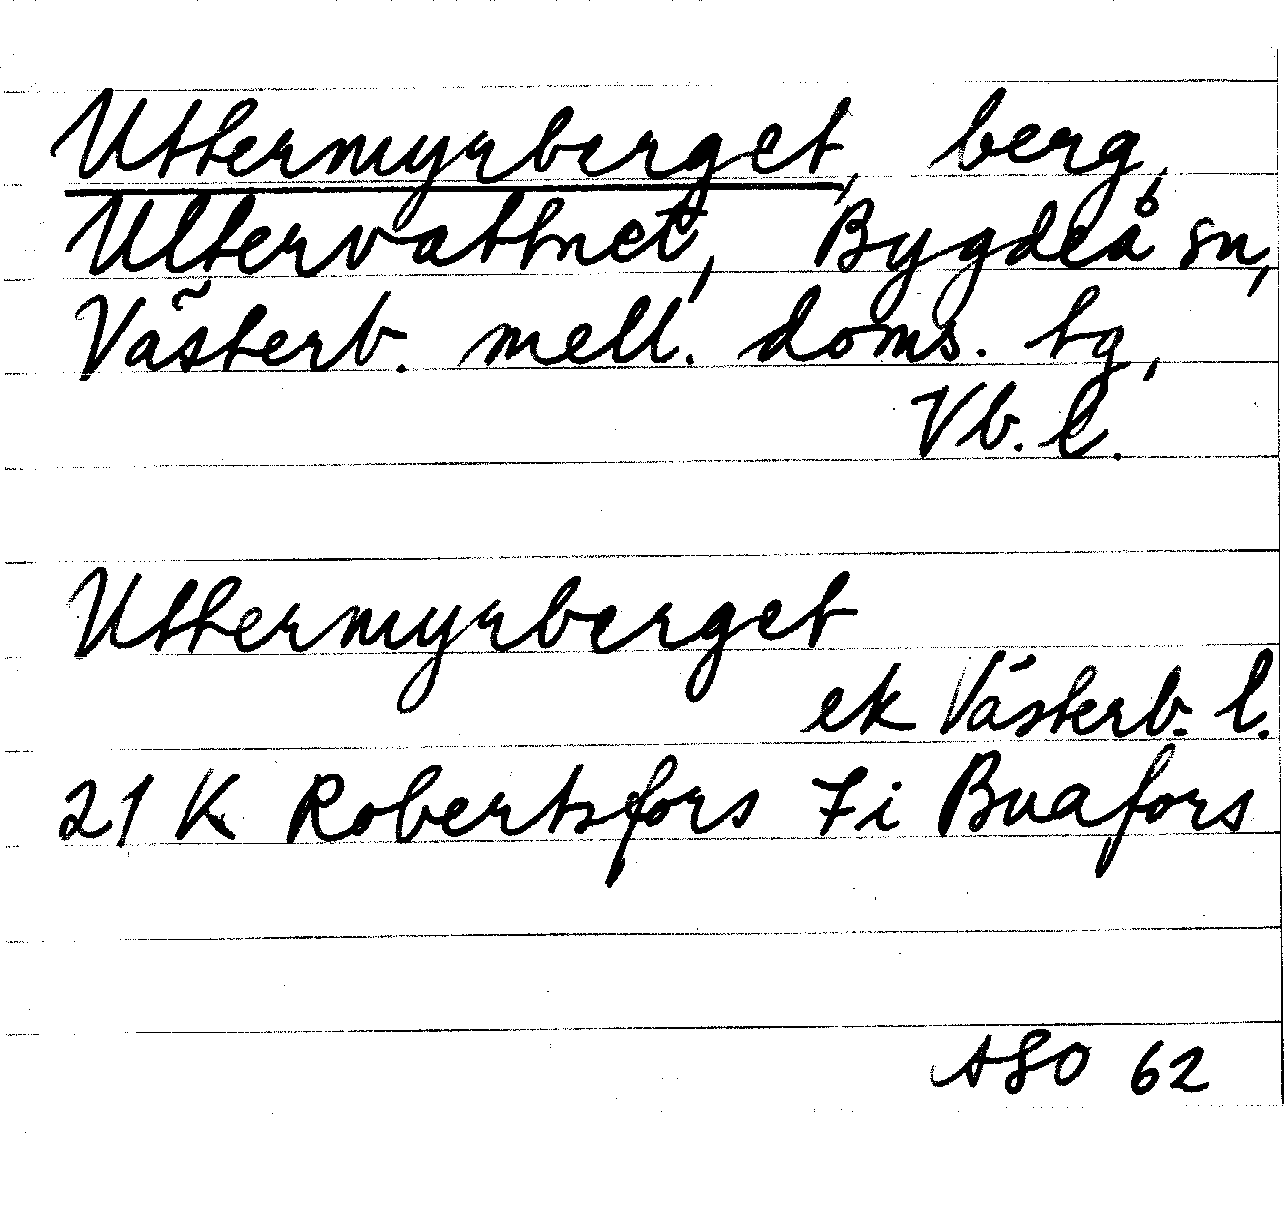 Uttermyrberget, berg,
Ultervattnet, Bygdeå sn,
Västerb. mell. doms. tg,
Vb. l.
Uttermyrberget
ek Västerb. l.
21 K Robertsfors 7i Buafors
ASO 62